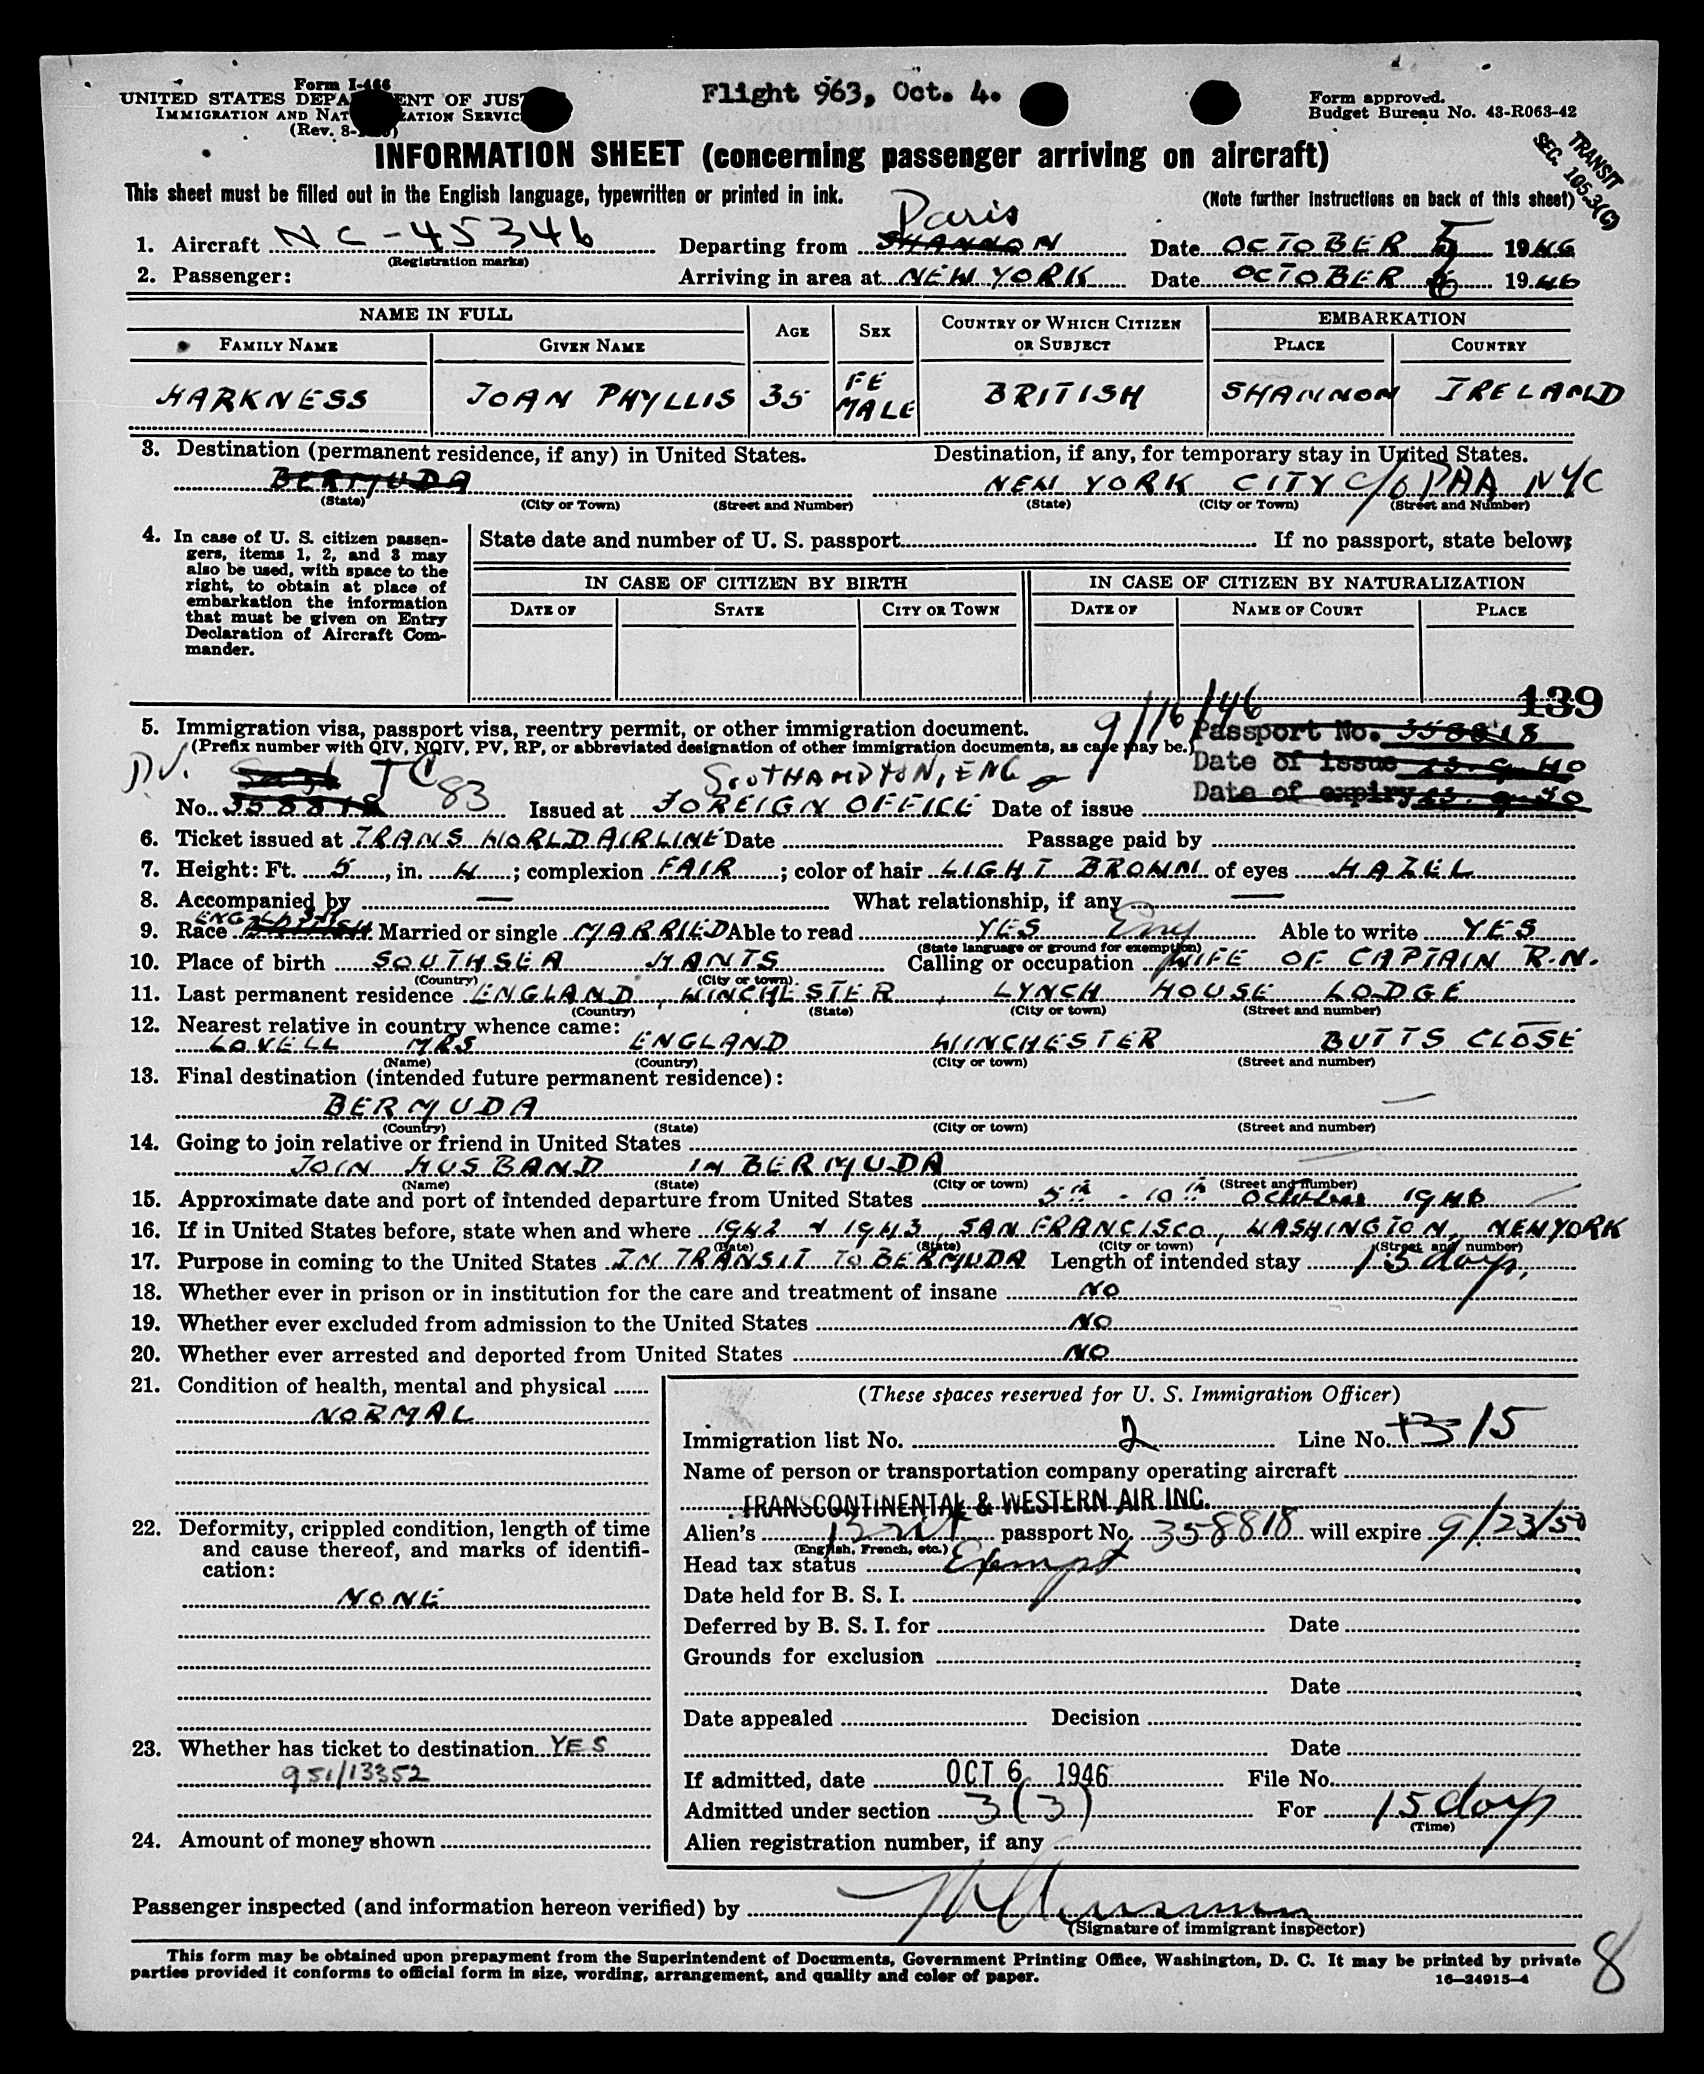 Form I-466
UNITED STATES DEPA ENT OF JUS
IMMIGRATION AND NAT ZATION SERVIC
(Rev. 8-
Flight 963, Oct. 4.
Form approved.
Budget Bureau No. 43-R063-42
TRANSIT
SEC. 105.3(C)
INFORMATION SHEET (concerning passenger arriving on aircraft)
This sheet must be filled out in the English language, typewritten or printed in ink.
(Note further instructions on back of this sheet)
Paris
1. Aircraft NC-45346 Departing from SHANNON Date OCTOBER 5 1946
(Registration marks)
2. Passenger: Arriving in area at NEW YORK Date OCTOBER 6 1946
NAME IN FULL AGE SEX COUNTRY OF WHICH CITIZEN OR SUBJECT EMBARKATION
FAMILY NAME GIVEN NAME PLACE COUNTRY
HARKNESS JOAN PHYLLIS 35 FE MALE BRITISH SHANNON IRELAND
3. Destination (permanent residence, if any) in United States. Destination, if any, for temporary stay in United States.
BERMUDA NEW YORK CITY C/O PAA NYC
(State) (City or Town) (Street and Number) (State) (City or Town) (Street and Number)
4. In case of U. S. citizen passen-
gers, items 1, 2, and 3 may
also be used, with space to the
right, to obtain at place of
embarkation the information
that must be given on Entry
Declaration of Aircraft Com-
mander.
State date and number of U. S. passport If no passport, state below;
IN CASE OF CITIZEN BY BIRTH IN CASE OF CITIZEN BY NATURALIZATION
DATE OF STATE CITY OR TOWN DATE OF NAME OF COURT PLACE
139
5. Immigration visa, passport visa, reentry permit, or other immigration document. 9/16/46
(Prefix number with QIV, NQIV, PV, RP, or abbreviated designation of other immigration documents, as case may be.)
Passport No. 358818
Date of issue 23.9.40
Date of expiry 23.9.50
P.V. TC 83 SOUTHAMPTON, ENG
No. 358818 Issued at FOREIGN OFFICE Date of issue
6. Ticket issued at TRANS WORLD AIRLINE Date Passage paid by
7. Height: Ft. 5, in. 4; complexion FAIR; color of hair LIGHT BROWN of eyes HAZEL
8. Accompanied by — What relationship, if any —
ENGLISH
9. Race Married or single MARRIED Able to read YES Eng Able to write YES
(State language or ground for exemption)
10. Place of birth SOUTHSEA HANTS Calling or occupation WIFE OF CAPTAIN R.N.
(Country) (City or town)
11. Last permanent residence ENGLAND, WINCHESTER, LYNCH HOUSE LODGE
(Country) (State) (City or town) (Street and number)
12. Nearest relative in country whence came:
LOVELL MRS ENGLAND WINCHESTER BUTTS CLOSE
(Name) (Country) (City or town) (Street and number)
13. Final destination (intended future permanent residence):
BERMUDA —
(Country) (State) (City or town) (Street and number)
14. Going to join relative or friend in United States
JOIN HUSBAND IN BERMUDA
(Name) (State) (City or town) (Street and number)
15. Approximate date and port of intended departure from United States 5th - 10th October 1946
16. If in United States before, state when and where 1942 & 1943, SAN FRANCISCO, WASHINGTON, NEW YORK
(Date) (State) (City or town) (Street and number)
17. Purpose in coming to the United States IN TRANSIT TO BERMUDA Length of intended stay 15 days,
18. Whether ever in prison or in institution for the care and treatment of insane NO
19. Whether ever excluded from admission to the United States NO
20. Whether ever arrested and deported from United States NO
21. Condition of health, mental and physical
NORMAL
22. Deformity, crippled condition, length of time
and cause thereof, and marks of identifi-
cation:
NONE
23. Whether has ticket to destination YES
951/13352
24. Amount of money shown
(These spaces reserved for U. S. Immigration Officer)
Immigration list No. 2 Line No. 13 15
Name of person or transportation company operating aircraft
TRANSCONTINENTAL & WESTERN AIR INC.
Alien's Brit passport No. 358818 will expire 9/23/50
(English, French, etc.)
Head tax status Exempt
Date held for B. S. I.
Deferred by B. S. I. for Date
Grounds for exclusion
Date
Date appealed Decision
Date
If admitted, date OCT 6 1946 File No.
Admitted under section 3(3) For 15 days
(Time)
Alien registration number, if any
Passenger inspected (and information hereon verified) by
(Signature of immigrant inspector)
This form may be obtained upon prepayment from the Superintendent of Documents, Government Printing Office, Washington, D. C. It may be printed by private
parties provided it conforms to official form in size, wording, arrangement, and quality and color of paper.
16—24915-4
8